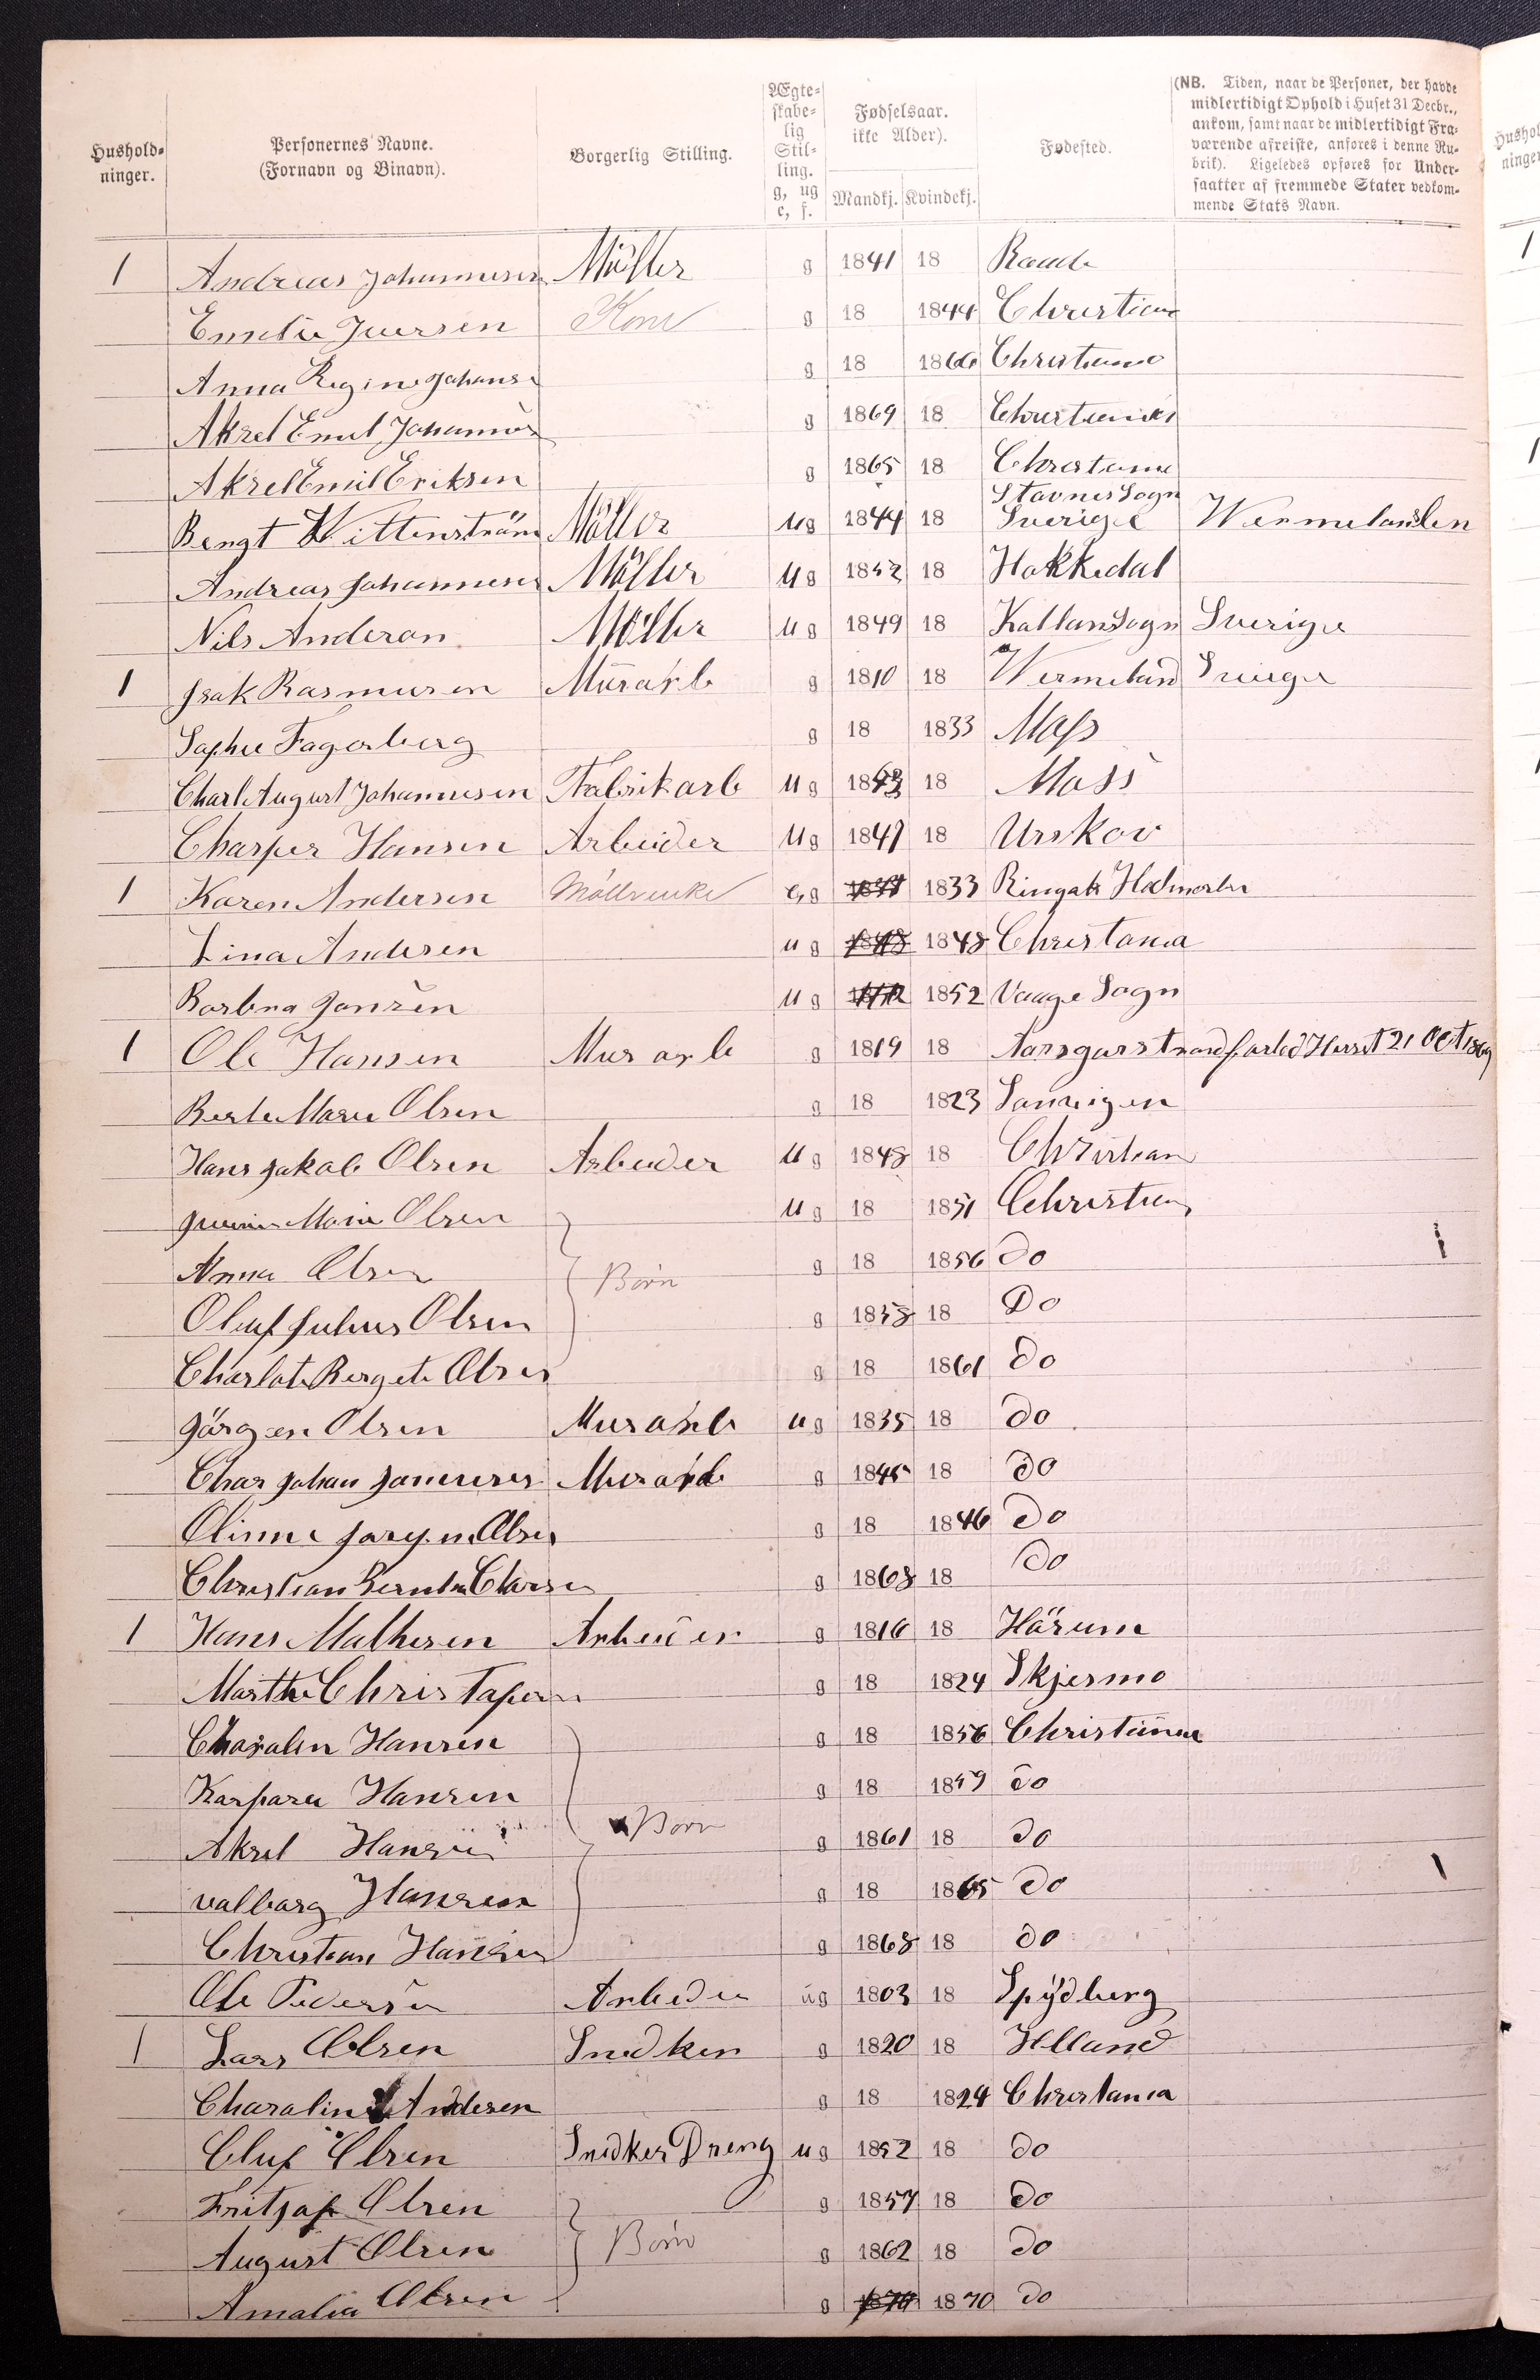 Hushold-
ninger.
Personernes Navne.
(Fornavn og Binavn).
Borgerlig Stilling.
Ægte-
skabe-
lig
Stil-
ling.
g, ug
e, f.
Fødselsaar.
ikke Alder).
Mandkj. Kvindekj.
Fødested.
(NB. Tiden, naar de Personer, der havde
midlertidigt Ophold i Huset 31 Decbr.,
ankom, samt naar de midlertidigt Fra-
værende afreiste, anføres i denne Ru-
brik). Ligeledes opføres for Under-
saatter af fremmede Stater vedkom-
mende Stats Navn.
1 Andreas Johannesen Möller g 1841 18 Raade
Emelie Iversen Kone g 18 1844 Christiana
Anna Regine Johans g 18 1866 Christiania
Aksel Emil Johannes g 1869 18 Christiania
Aksel Emil Eriksen g 1865 18 Christania
Bengt Wittenström Möller ug 1844 18 Stavnes Sogn Sverige Wermelanden
Andreas Johannesen Möller ug 1852 18 Hakkedal
Nils Anderson Möller ug 1849 18 Kallan Sogn Sverige
1 Isak Rasmusen Murarb g 1810 18 Wermeland Sverige
Sophie Fagerberg g 18 1833 Moss
Charl August Johannesen Fabrikarb ug 1843 18 Moss
Charper Hansen Arbeider ug 1847 18 Urskov
1 Karen Andersen Möllerenke eg 1833 Ringsak Hedmarken
Lina Andersen ug 1848 Christania
Barbra Jansen ug 1852 Vaage Sogn
1 Ole Hansen Mur arb g 1819 18 Aarsgarstrand 21 Oct 1869
Berte Marie Olsen g 18 1823
Hans Jakob Olsen Arbeider ug 1848 18 Christian
Marie Olsen ug 18 1851 Christian
Anna Olsen Børn g 18 1856 do
Oluf Julius Olsen g 1858 18 Do
Charlote Bergete Olsen g 18 1861 do
Jörgen Olsen Murarb ug 1835 18 do
Char Johan Murarb g 1845 18 do
Olinne Olsen g 18 1846 do
Christian g 1868 18 do
1 Hans Mathesen Arbeider g 1816 18 Härum
Marthe Christapersen g 18 1824 Skjermo
Charalin Hansen g 18 1856 Christiania
Kaspara Hansen g 18 1859 do
Aksel Hansen Born g 1861 18 do
valbarg Hansen g 18 1865 do
Christian Hansen g 1868 18 do
Ole Pedersen Arbeider ug 1803 18 Spÿdberg
1 Lars Olsen Snedker g 1820 18
Charalin Andersen g 18 1824 Christania
Oluf Olsen Snedker Dreng ug 1852 18 do
Fritjaf Olsen g 1857 18 do
August Olsen Børn g 1862 18 do
Amalia Olsen g 1870 do